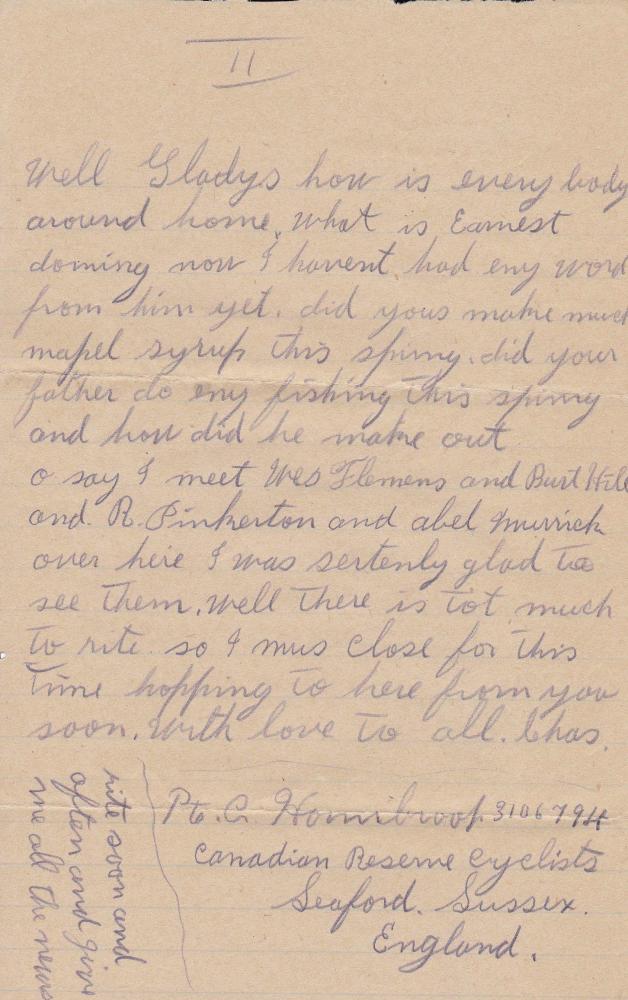 11
Well Gladys how is every body
around home. What is Earnest
doming now I havent had eny word
from him yet. did yous make much
mapel syrup this spring. did your
father do eny fishing this spring
and how did he make out
o say I meet Wes Flemens and Burt
and. R. Pinkerton and abel Murrick
over here I was sertenly glad to
see them. well there is tot much
to rite. so I mus close for this
time hopping to here from you
soon. With love to all. Chas.
Pt. C. Hornibrook 3106794
Canadian Reserve Cyclists
Seaford. Sussex.
England.
rite soon and
often and give
me all the news